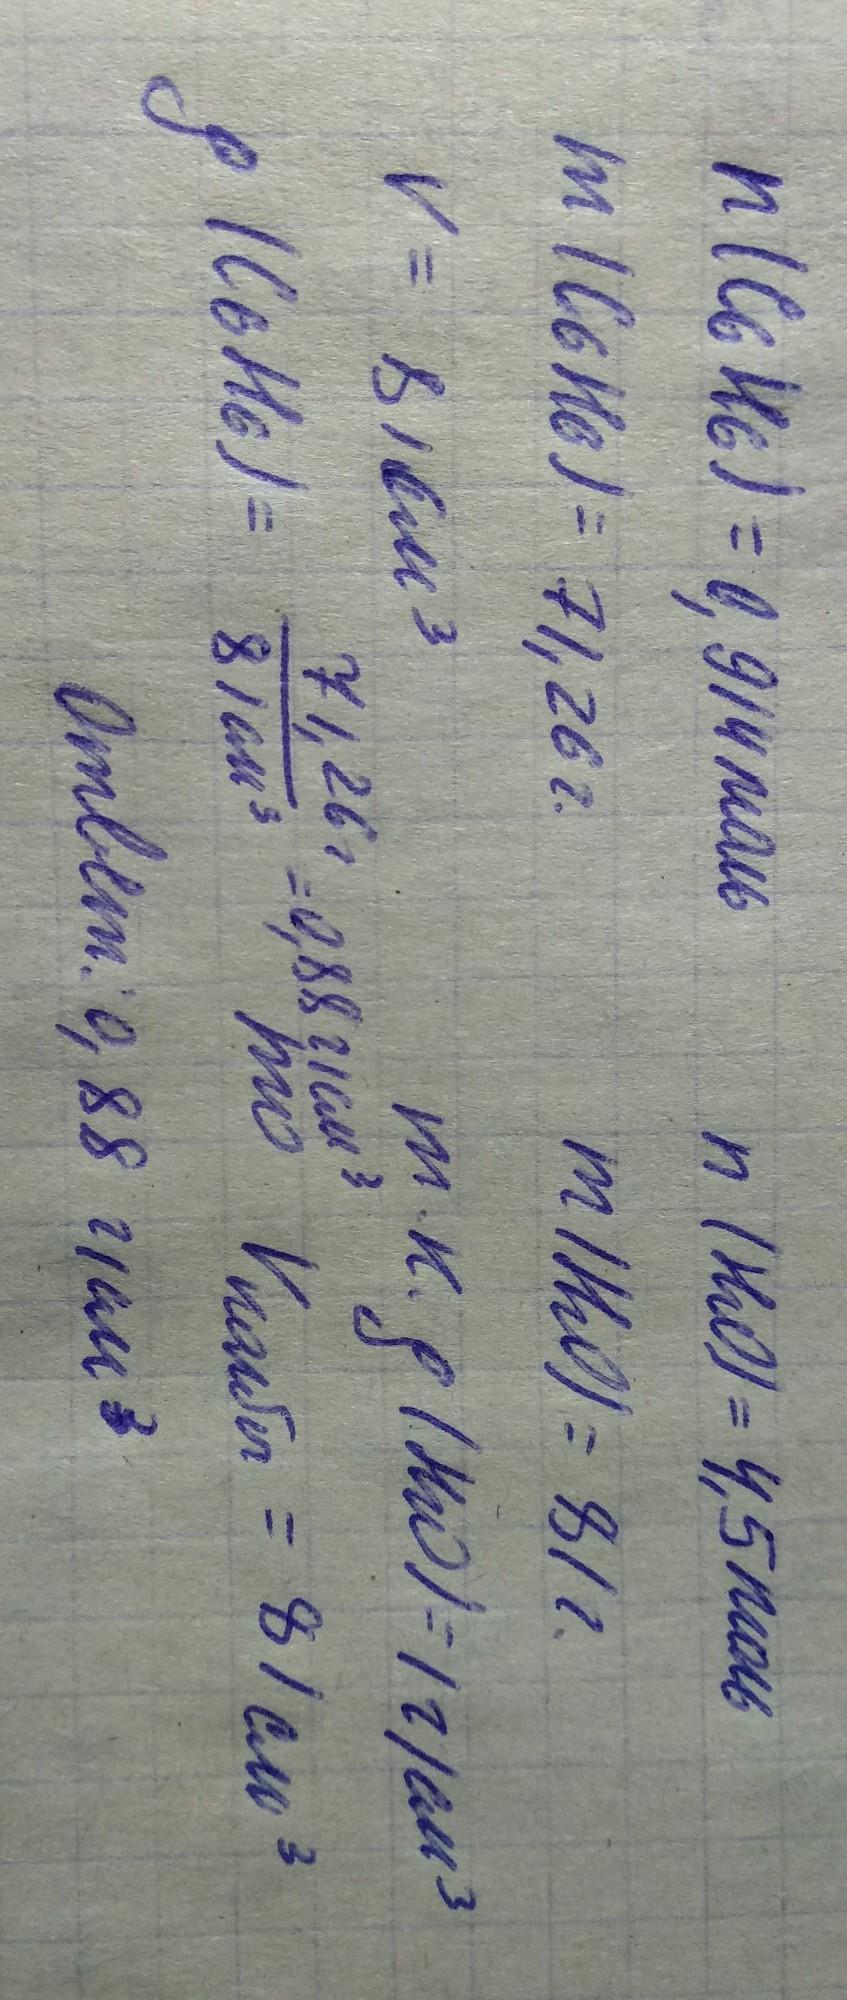 n(C6H6) = 0,914моль n(H2O) = 4,5моль
m(C6H6) = 71,26г. m(H2O) = 81г.
V = 81см³ т.к. ρ(H2O) = 1г/см³
ρ(C6H6) = 71,26г / 81см³ = 0,88г/см³ то Vколбы = 81см³
Ответ: 0,88 г/см³